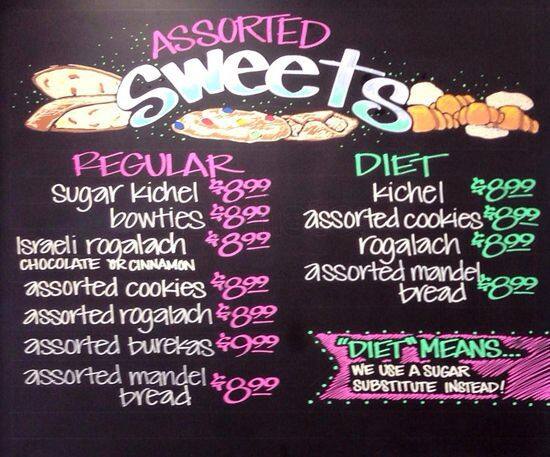 ASSORTED
Sweets
REGULAR
sugar kichel $8.99
bowties $8.99
Israeli rogalach $8.99
CHOCOLATE OR CINNAMON
assorted cookies $8.99
assorted rogalach $8.99
assorted burekas $9.99
assorted mandel
bread $8.99
DIET
kichel $8.99
assorted cookies $8.99
rogalach $8.99
assorted mandel
bread $8.99
"DIET" MEANS...
WE USE A SUGAR
SUBSTITUTE INSTEAD!